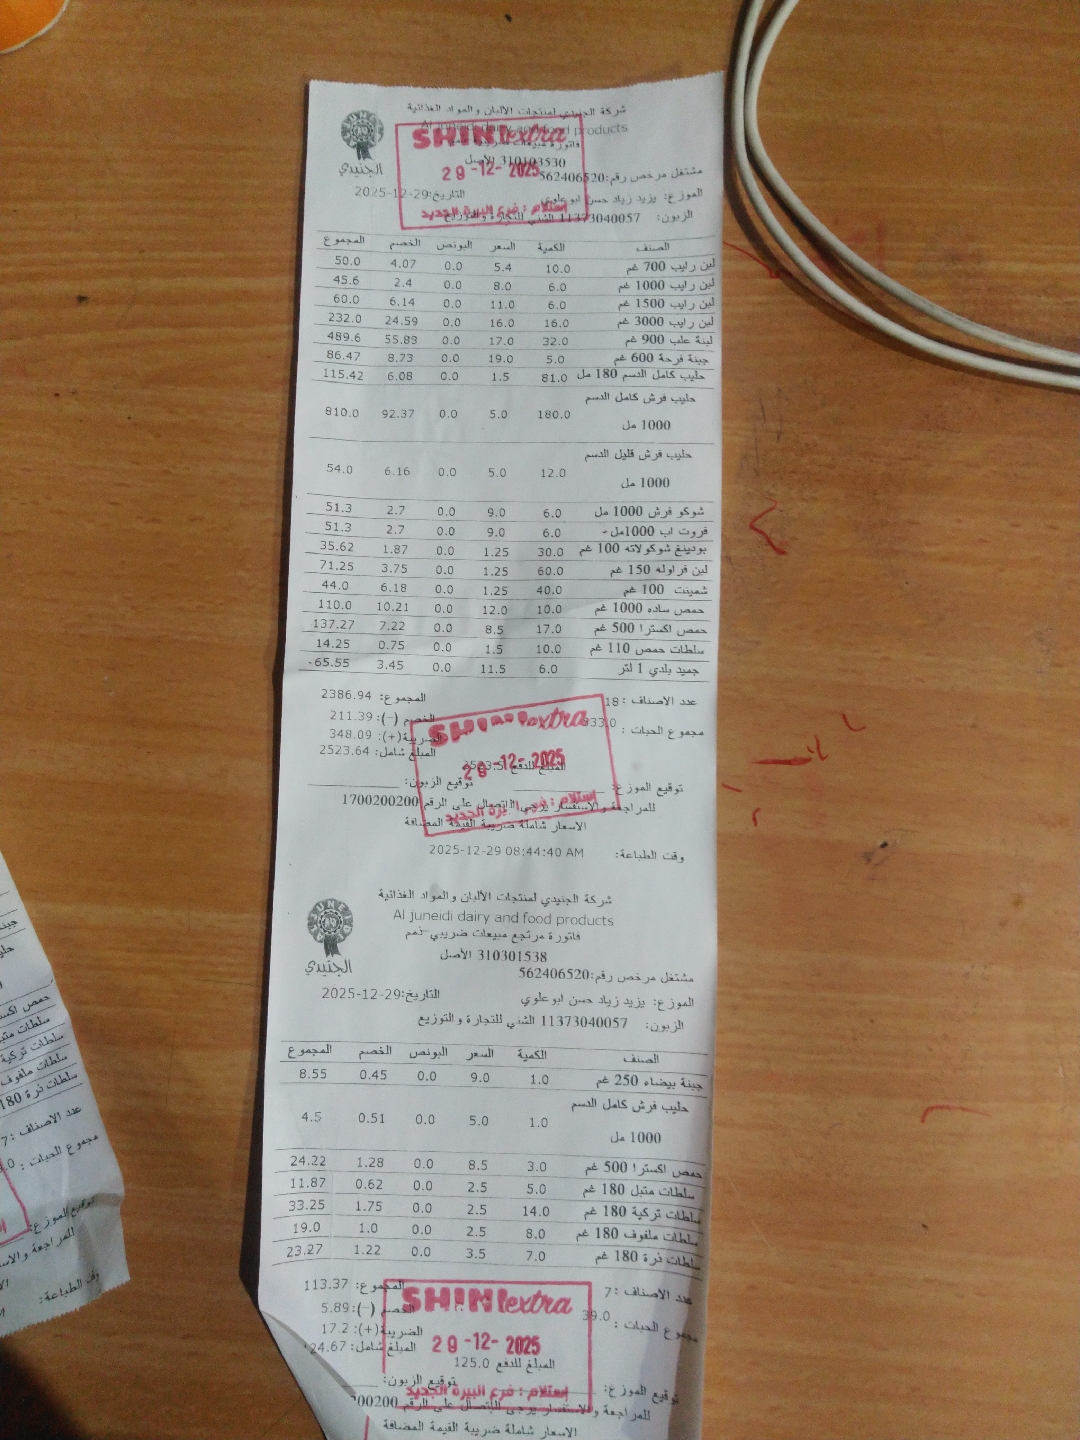 شركة الجنيدي لمنتجات الألبان و المواد الغذائية
Al Juneidi dairy and food products
فاتورة مبيعات ضريبية
310103530 الأصل
مشتغل مرخص رقم:562406520
التاريخ:29-12-2025
الموزع: يزيد زياد حسن ابوعلوي
الزبون: 11373040057 الشني للتجارة و التوزيع
الجنيدي
SHINI extra
29-12-2025
إستلام : فرع البيرة الجديد
الصنف الكمية السعر البونص الخصم المجموع
لبن رايب 700 غم 10.0 5.4 0.0 4.07 50.0
لبن رايب 1000 غم 6.0 8.0 0.0 2.4 45.6
لبن رايب 1500 غم 6.0 11.0 0.0 6.14 60.0
لبن رايب 3000 غم 16.0 16.0 0.0 24.59 232.0
لبنة علب 900 غم 32.0 17.0 0.0 55.83 489.6
جبنة فرحة 600 غم 5.0 19.0 0.0 8.73 86.47
حليب كامل الدسم 180 مل 81.0 1.5 0.0 6.08 115.42
حليب فرش كامل الدسم
1000 مل 180.0 5.0 0.0 92.37 810.0
حليب فرش قليل الدسم
1000 مل 12.0 5.0 0.0 6.16 54.0
شوكو فرش 1000 مل 6.0 9.0 0.0 2.7 51.3
فروت اب 1000مل- 6.0 9.0 0.0 2.7 51.3
بودينغ شوكولاته 100 غم 30.0 1.25 0.0 1.87 35.62
لبن فراوله 150 غم 60.0 1.25 0.0 3.75 71.25
شمينت 100 غم 40.0 1.25 0.0 6.18 44.0
حمص ساده 1000 غم 10.0 12.0 0.0 10.21 110.0
حمص اكسترا 500 غم 17.0 8.5 0.0 7.22 137.27
سلطات حمص 110 غم 10.0 1.5 0.0 0.75 14.25
جميد بلدي 1 لتر 6.0 11.5 0.0 3.45 65.55
عدد الاصناف : 18
المجموع: 2386.94
الخصم (-): 211.39
مجموع الحبات : 533.0
الضريبة(+): 348.09
المبلغ شامل: 2523.64
المبلغ للدفع 2523.5
توقيع الموزع:
توقيع الزبون:
للمراجعة و الاستفسار يرجى الاتصال على الرقم 1700200200
الاسعار شاملة ضريبة القيمة المضافة
وقت الطباعة: 2025-12-29 08:44:40 AM
SHINI extra
29-12-2025
إستلام : فرع البيرة الجديد
شركة الجنيدي لمنتجات الألبان و المواد الغذائية
Al Juneidi dairy and food products
فاتورة مرتجع مبيعات ضريبي-ذمم
310301538 الأصل
مشتغل مرخص رقم:562406520
التاريخ:29-12-2025
الموزع: يزيد زياد حسن ابوعلوي
الزبون: 11373040057 الشني للتجارة و التوزيع
الجنيدي
الصنف الكمية السعر البونص الخصم المجموع
جبنة بيضاء 250 غم 1.0 9.0 0.0 0.45 8.55
حليب فرش كامل الدسم
1000 مل 1.0 5.0 0.0 0.51 4.5
حمص اكسترا 500 غم 3.0 8.5 0.0 1.28 24.22
سلطات متبل 180 غم 5.0 2.5 0.0 0.62 11.87
سلطات تركية 180 غم 14.0 2.5 0.0 1.75 33.25
سلطات ملفوف 180 غم 8.0 2.5 0.0 1.0 19.0
سلطات ذرة 180 غم 7.0 3.5 0.0 1.22 23.27
عدد الاصناف : 7
المجموع: 113.37
الخصم (-): 5.89
مجموع الحبات : 39.0
الضريبة(+): 17.2
المبلغ شامل: 24.67
المبلغ للدفع 125.0
توقيع الموزع:
توقيع الزبون:
للمراجعة و الاستفسار يرجى الاتصال على الرقم 200200
الاسعار شاملة ضريبة القيمة المضافة
SHINI extra
29-12-2025
إستلام : فرع البيرة الجديد
حمص اكس
سلطات متب
سلطات تركية
سلطات ملفوف
سلطات ذرة 180
عدد الاصناف : 7
مجموع الحبات :
توقيع الموزع:
للمراجعة و الاس
وقت الطباعة: